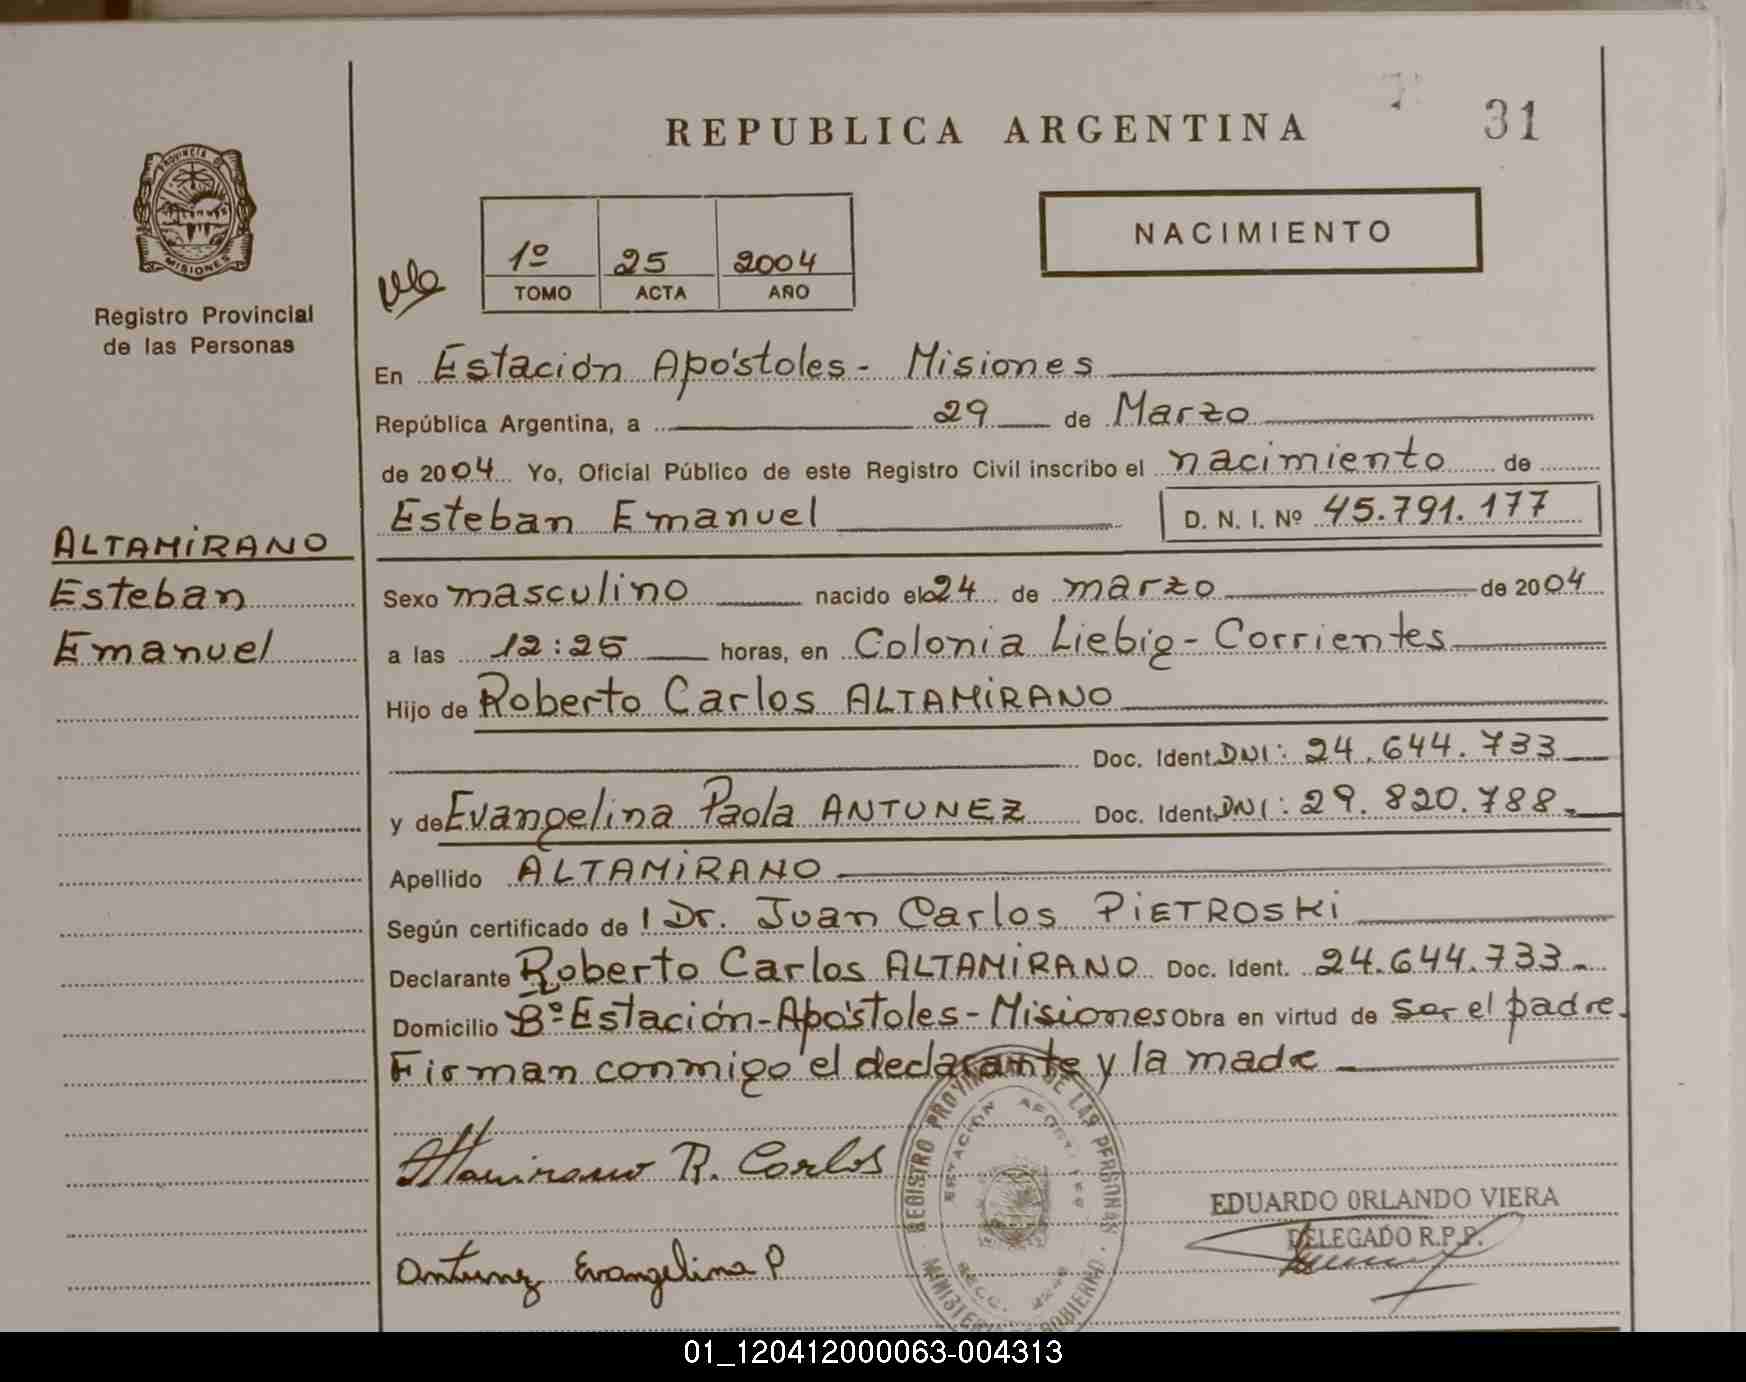 31
REPUBLICA ARGENTINA
PROVINCIA DE
MISIONES
Registro Provincial
de las Personas
1º 25 2004
TOMO ACTA AÑO
NACIMIENTO
En Estación Apóstoles - Misiones
República Argentina, a 29 de Marzo
de 2004 Yo, Oficial Público de este Registro Civil inscribo el nacimiento de
Esteban Emanuel D. N. I. Nº 45.791.177
ALTAMIRANO
Esteban
Emanuel
Sexo masculino nacido el 24 de marzo de 2004
a las 12:25 horas, en Colonia Liebig - Corrientes
Hijo de Roberto Carlos ALTAMIRANO
Doc. Ident. DNI: 24.644.733
y de Evangelina Paola ANTUNEZ Doc. Ident. DNI: 29.820.788.
Apellido ALTAMIRANO
Según certificado de l Dr. Juan Carlos PIETROSKI
Declarante Roberto Carlos ALTAMIRANO Doc. Ident. 24.644.733.
Domicilio Bº Estación - Apóstoles - Misiones Obra en virtud de ser el padre.
Firman conmigo el declarante y la madre
Altamirano R. Carlos
Antunez Evangelina P
REGISTRO PROVINCIAL DE LAS PERSONAS
ESTACION APOSTOLES
EDUARDO ORLANDO VIERA
DELEGADO R.P.P.
01_120412000063-004313